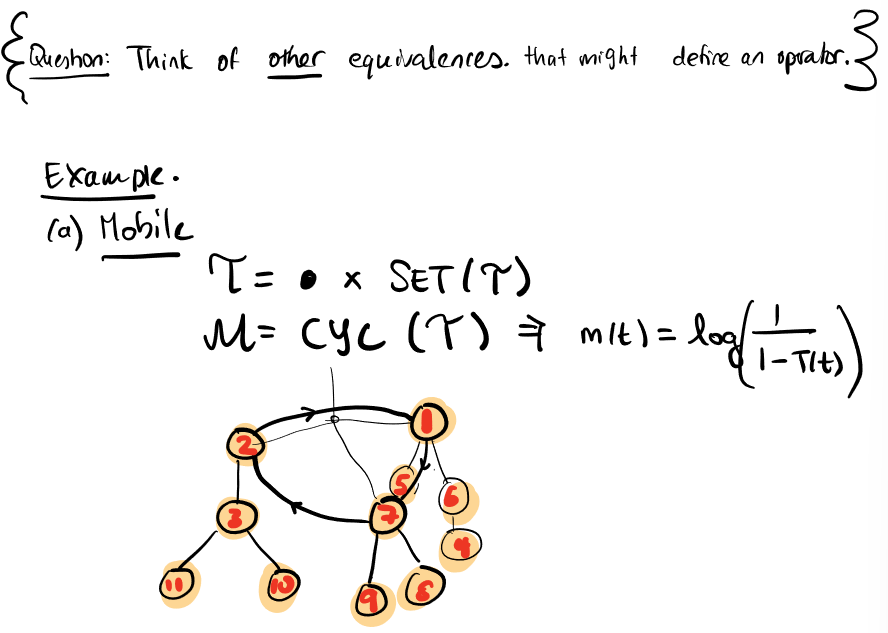 Question: Think of other equivalences. that might define an oprator.
Example.
(a) Mobile
T = • × SET(T)
M = CYC (T) ⇒ m(t) = log(1/(1-T(t)))
1
2
5
6
7
3
4
11
10
9
8